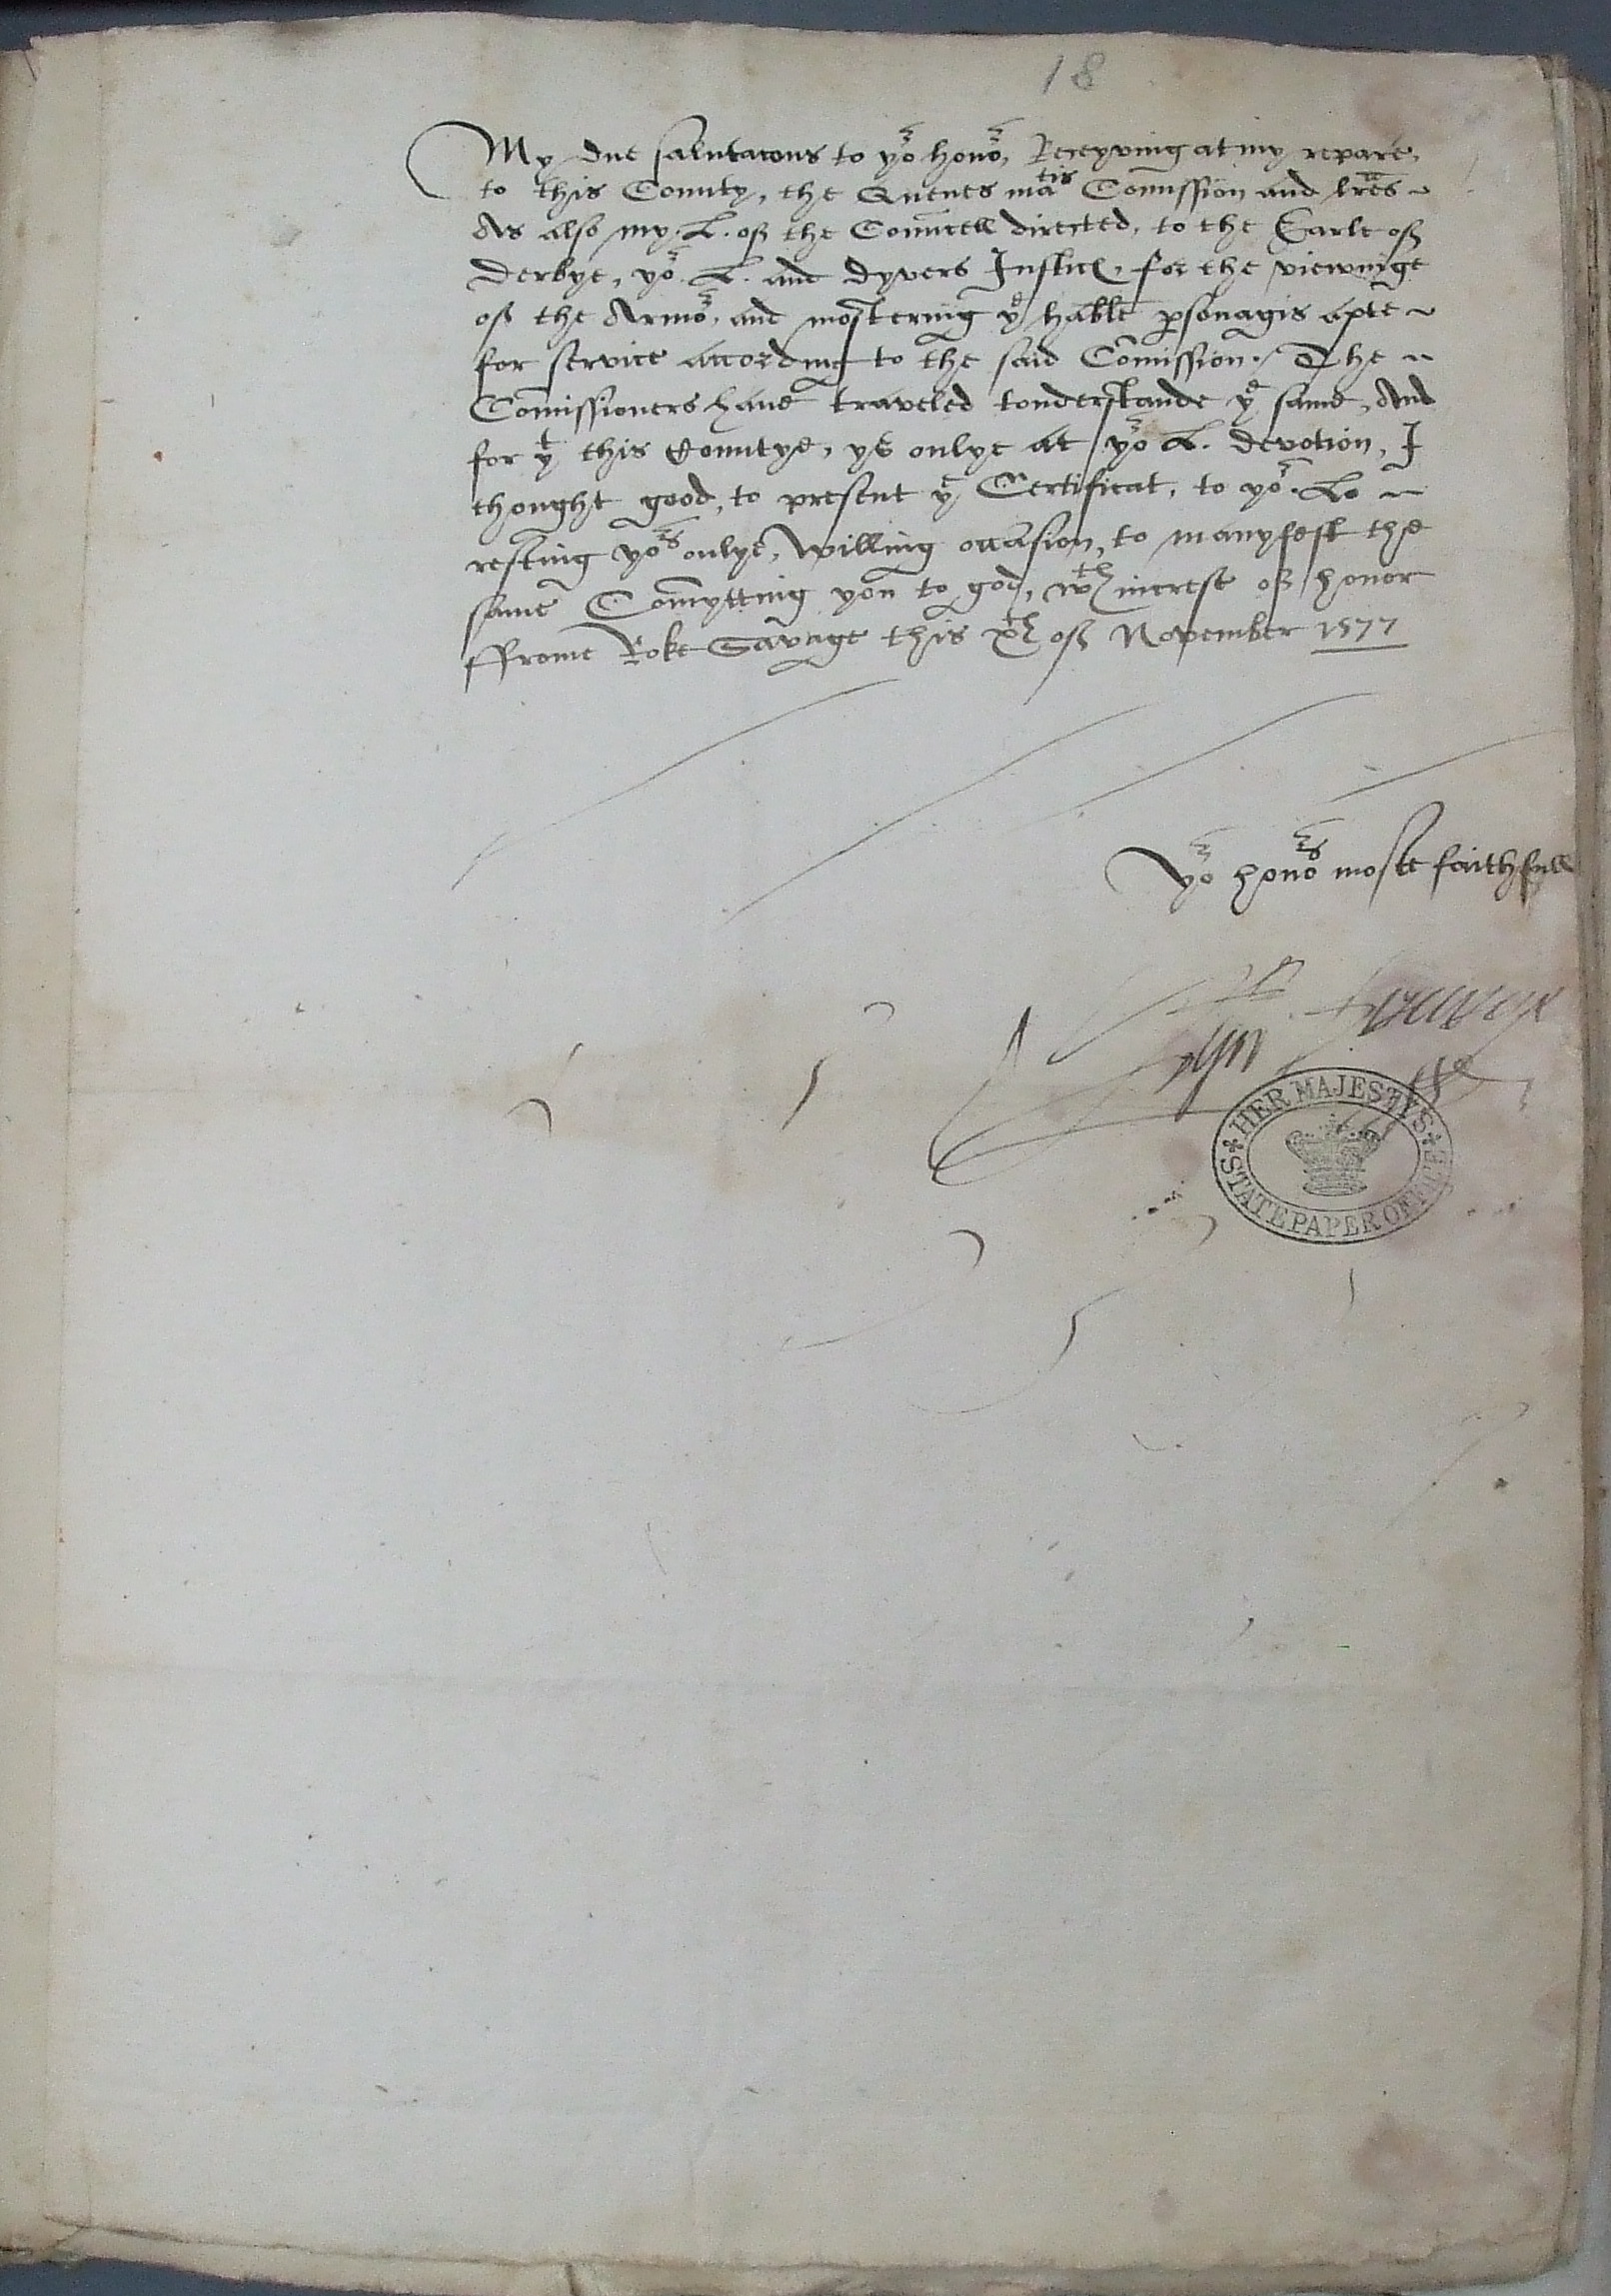 18
My due salutacons to yor honor, Receyving at my repare,
to this County, the Quenes matis Comission and lres ~
As also my. L. of the Councell directed, to the Earle of
Derbye, yor. L. and dyvers Justic, for the viewinge
of the Armor, and mostering ye hable psonagis apte ~
for service according to the said Comission. / The ~
Comissioners have traveled tonderstande ye same, And
for yt this Countye, ys onlye at yor L. devotion, I
thought good, to present ye Certificat, to yor. Lo ~
resting yors onlye, Willing occasion, to manyfest the
same Comytting you to god, wth increse of honor
ffrome Roke Savage this xth of November 1577
Yor honors moste faithfull
Savage
HER MAJESTY'S
STATE PAPER OFFICE